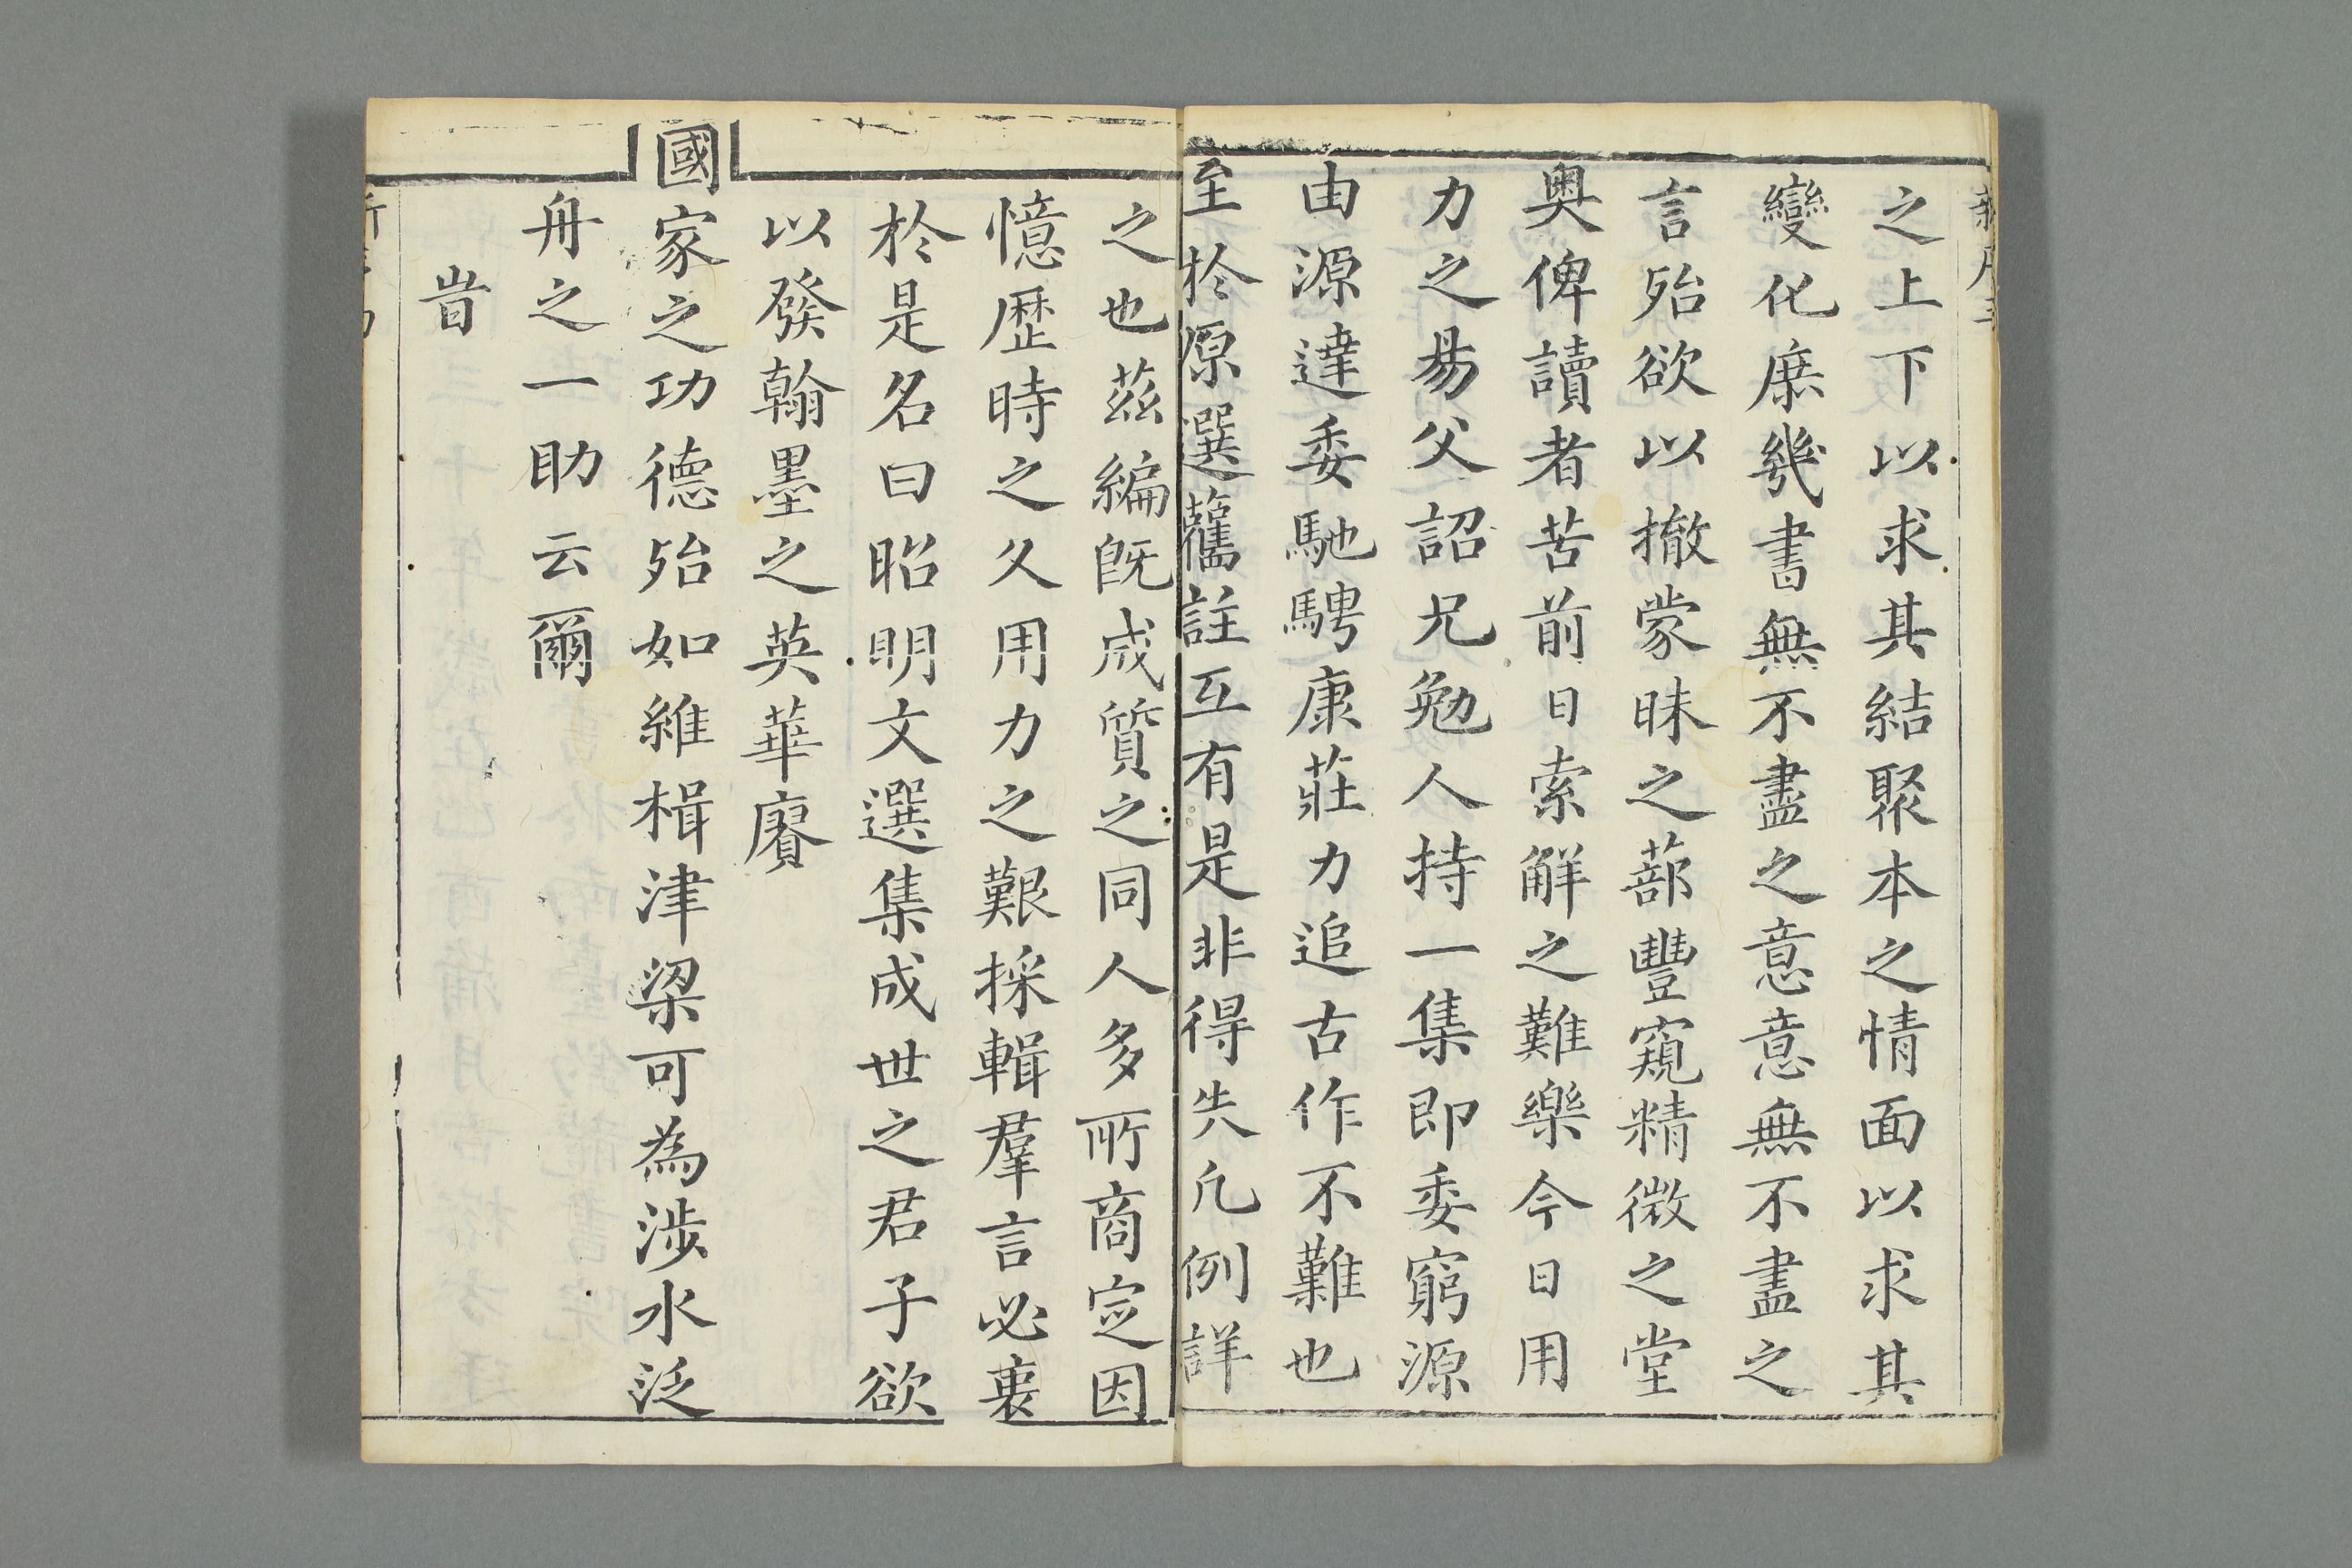 之上下以求其結聚本之情面以求其
變化庻幾書無不盡之意意無不盡之
言殆欲以撤蒙昧之蔀豐窺精微之堂
奥俾讀者苦前日索觧之難樂今日用
力之易父詔兄勉人持一集即委窮源
由源達委馳騁康莊力追古作不難也
至於原選舊註互有是非得失凢例詳
之也茲編旣成質之同人多所商定因
憶歴時之久用力之艱採輯羣言必裹
於是名曰昭明文選集成世之君子欲
以發翰墨之英華賡
國家之功德殆如維楫津梁可為渉水泛
舟之一助云爾
旹